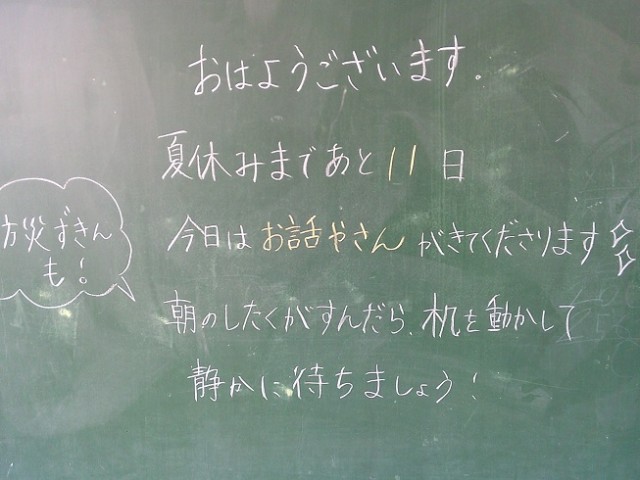 おはようございます。
夏休みまであと11日
今日はお話やさんがきてくださります
朝のしたくがすんだら、机を動かして
静かに待ちましょう!
防災ずきん
も!